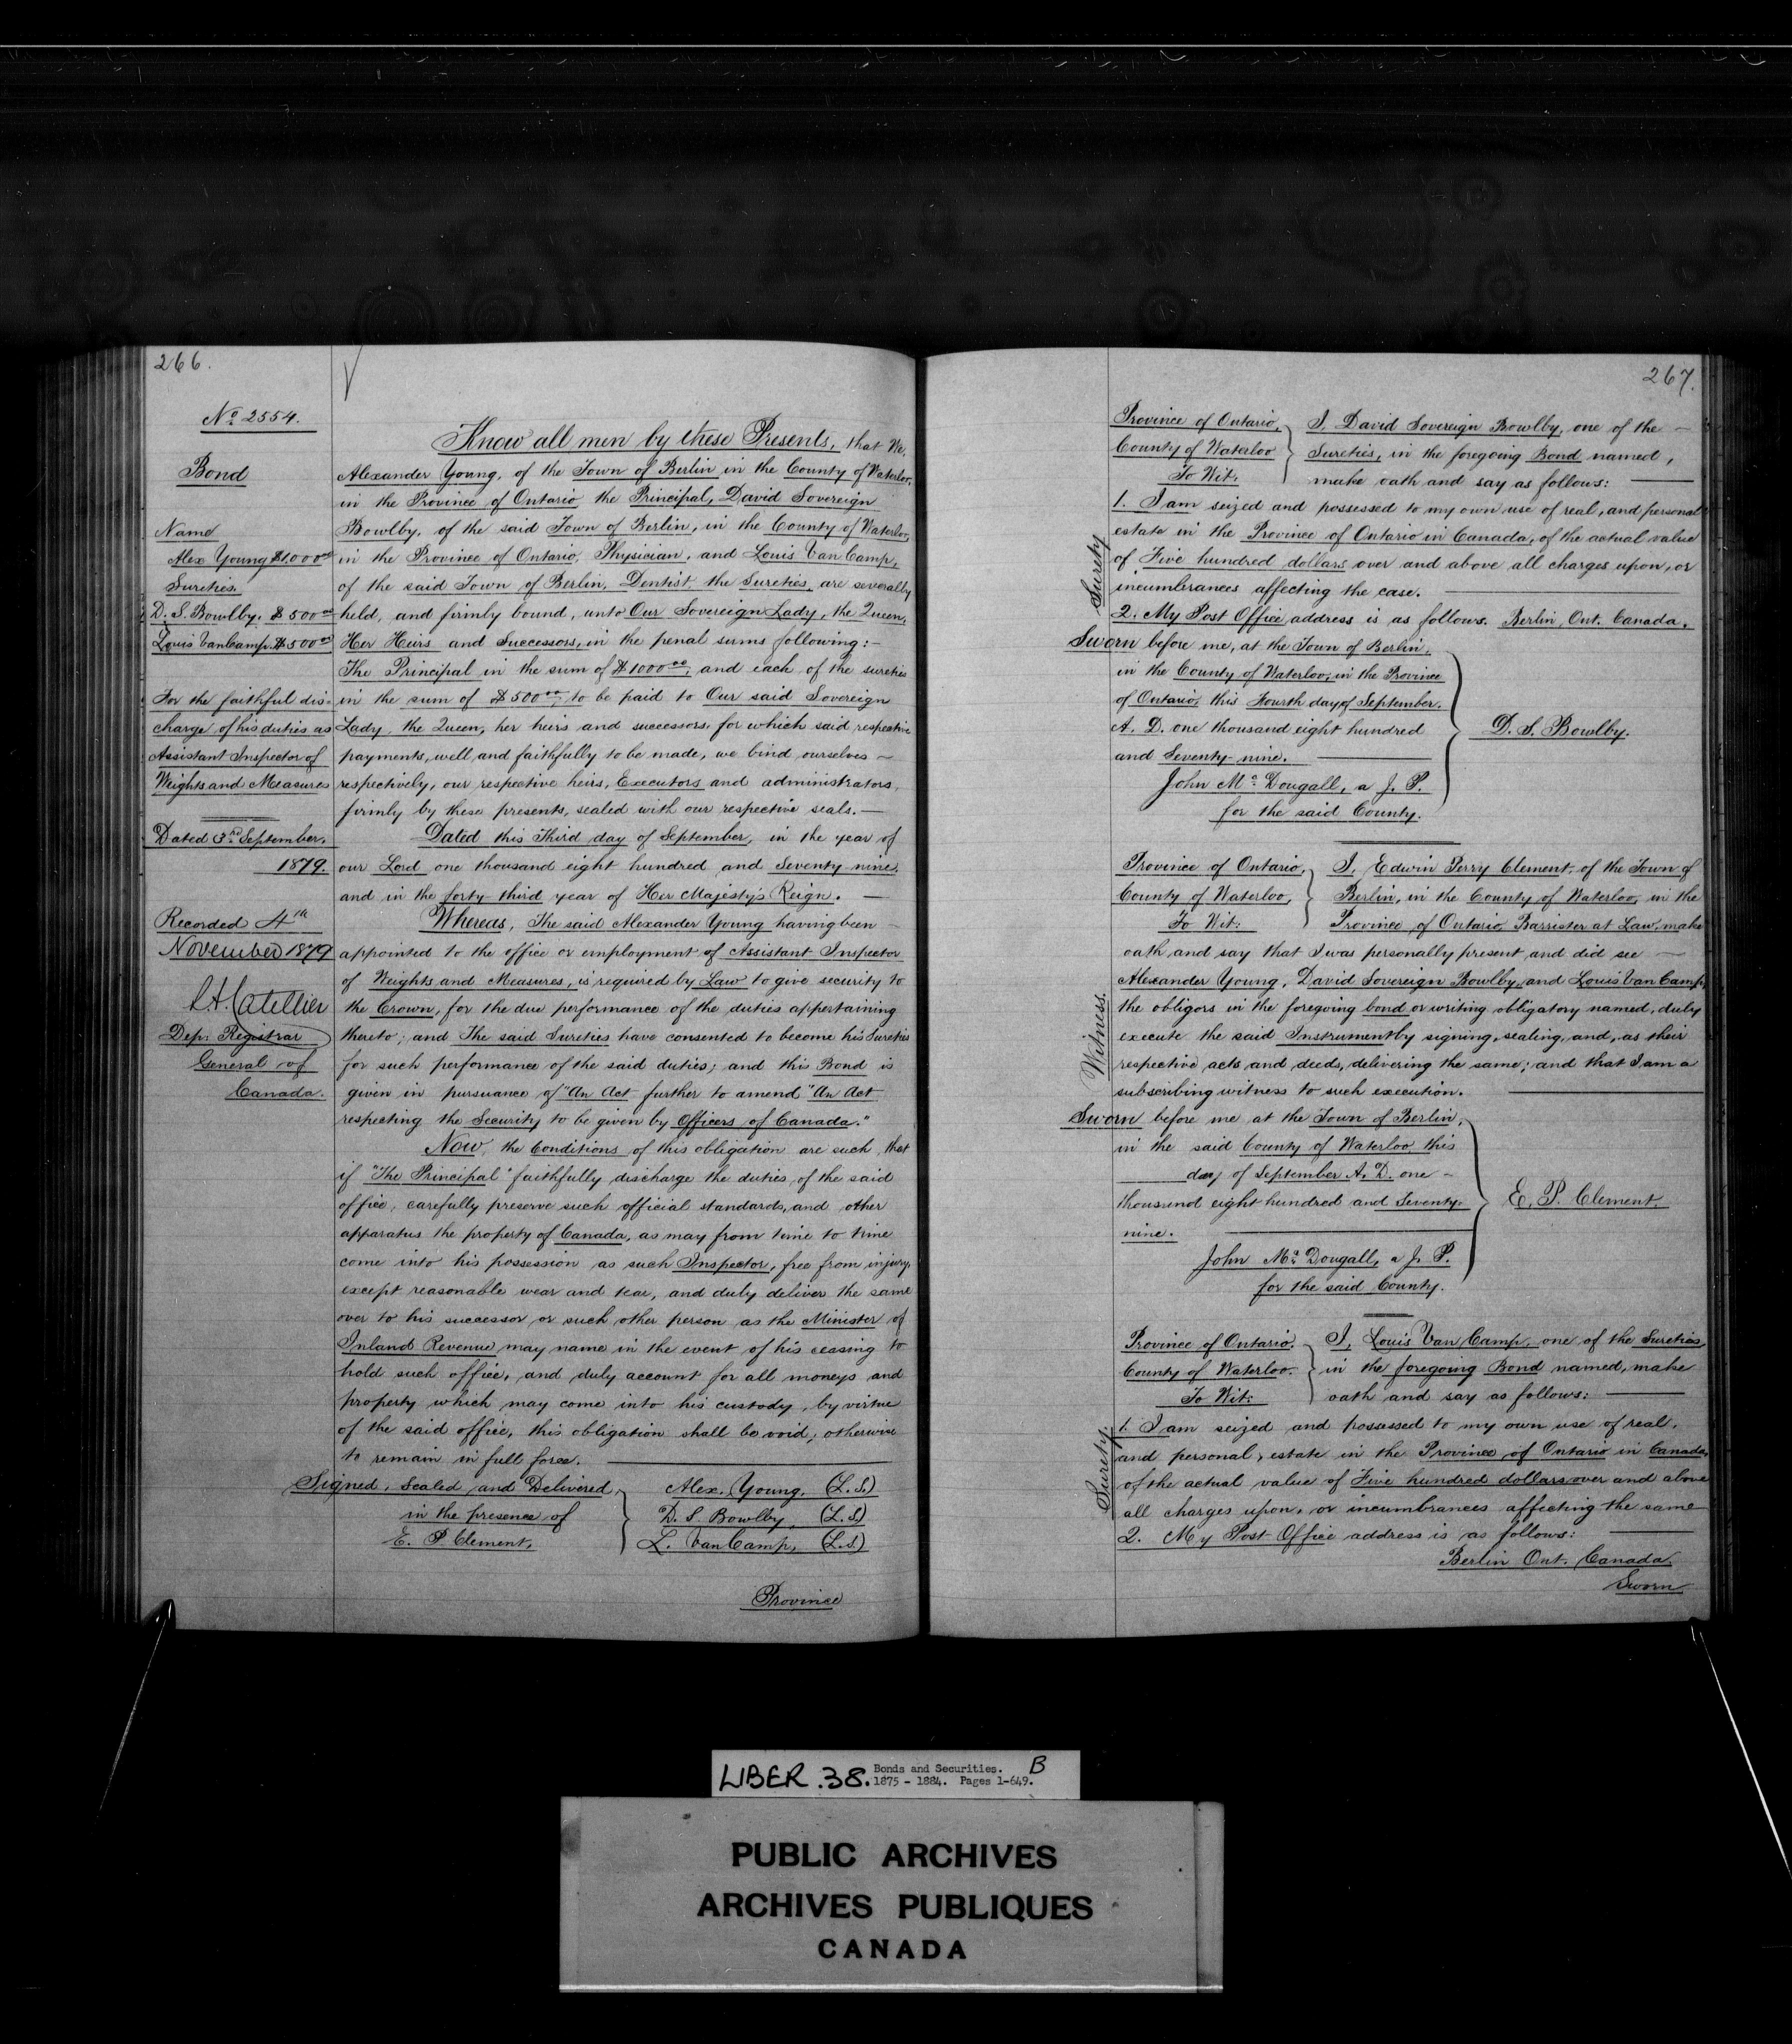 266.
No 2554.
Bond
Name
Alex Young $1000 00
Sureties.
D. S. Bowlby. $500 00
Louis VanCamp. $500 00
For the faithful dis-
charge of his duties as
Assistant Inspector of
Weights and Measures
Dated 3rd September.
1879.
Recorded 4th
November 1879
Dep: Registrar
General of
Canada.
Know all men by these Presents, that We,
Alexander Young, of the Town of Berlin in the County of Waterloo,
in the Province of Ontario the Principal, David Sovereign
Bowlby, of the said Town of Berlin, in the County of Waterloo,
in the Province of Ontario, Physician, and Louis Van Camp,
of the said Town of Berlin, Dentist the Sureties, are severally
held, and firmly bound, unto Our Sovereign Lady, the Queen,
Her Heirs and Successors, in the penal sums following:-
The Principal in the sum of $1000 00, and each of the sureties
in the sum of $500 00, to be paid to Our said Sovereign
Lady, the Queen, her heirs and successors, for which said respective
payments, well and faithfully to be made, we bind ourselves –
respectively, our respective heirs, Executors and administrators,
firmly by these presents, sealed with our respective seals. —
Dated this Third day of September, in the year of
our Lord one thousand eight hundred and Seventy nine.
and in the forty third year of Her Majesty's Reign. —
Whereas, The said Alexander Young having been –
appointed to the office or employment of Assistant Inspector
of Weights and Measures, is required by Law to give security to
the Crown, for the due performance of the duties appertaining
thereto; and The said Sureties have consented to become his Sureties
for such performance of the said duties; and this Bond is
given in pursuance of "An Act further to amend "An Act
respecting the Security to be given by Officers of Canada."
Now, the Conditions of this obligation are such, that
if "The Principal" faithfully discharge the duties of the said
office, carefully preserve such official standards, and other
apparatus the property of Canada, as may from time to time
come into his possession as such Inspector, free from injury,
except reasonable wear and tear, and duly deliver the same
over to his successor or such other person as the Minister of
Inland Revenue may name in the event of his ceasing to
hold such office, and duly account for all moneys and
property which may come into his custody, by virtue
of the said office, this obligation shall be void; otherwise
to remain in full force.
Signed, Sealed and Delivered, Alex. Young. (L.S.)
in the presence of D. S. Bowlby, (L.S.)
E. P. Clement, L. VanCamp, (L.S.)
Province
267.
Province of Ontario, I, David Sovereign Bowlby, one of the –
County of Waterloo Sureties, in the foregoing Bond named,
To Wit: make oath and say as follows: —
Surety
1. I am seized and possessed to my own use of real, and personal
estate in the Province of Ontario in Canada, of the actual value
of Five hundred dollars over and above all charges upon, or
incumbrances affecting the case.
2. My Post Office address is as follows. Berlin, Ont. Canada.
Sworn before me, at the Town of Berlin,
in the County of Waterloo, in the Province
of Ontario, this Fourth day of September.
A. D. one thousand eight hundred D. S. Bowlby.
and Seventy nine.
John McDougall, a J. P.
for the said County.
Province of Ontario, I, Edwin Perry Clement, of the Town of
County of Waterloo, Berlin, in the County of Waterloo, in the
To Wit: Province of Ontario, Barrister at Law, make
Witness.
oath and say that I was personally present and did see –
Alexander Young, David Sovereign Bowlby, and Louis Van Camp,
the obligors in the foregoing bond or writing obligatory named, duly
execute the said Instrument by signing, sealing, and, as their
respective acts and deeds, delivering the same; and that I am a
subscribing witness to such execution.
Sworn before me at the Town of Berlin,
in the said County of Waterloo this
day of September A. D. one –
thousand eight hundred and Seventy- E. P. Clement.
nine.
John McDougall, a J. P.
for the said County.
Province of Ontario. I, Louis Van Camp, one of the Sureties
County of Waterloo. in the foregoing Bond named, make
To Wit: oath and say as follows: —
Surety.
1. I am seized and possessed to my own use of real,
and personal, estate in the Province of Ontario in Canada,
of the actual value of Five hundred dollars over and above
all charges upon, or incumbrances affecting the same
2. My Post Office address is as follows:
Berlin Ont. Canada.
Sworn
LIBER .38. Bonds and Securities. B
1875 - 1884. Pages 1-649.
PUBLIC ARCHIVES
ARCHIVES PUBLIQUES
CANADA